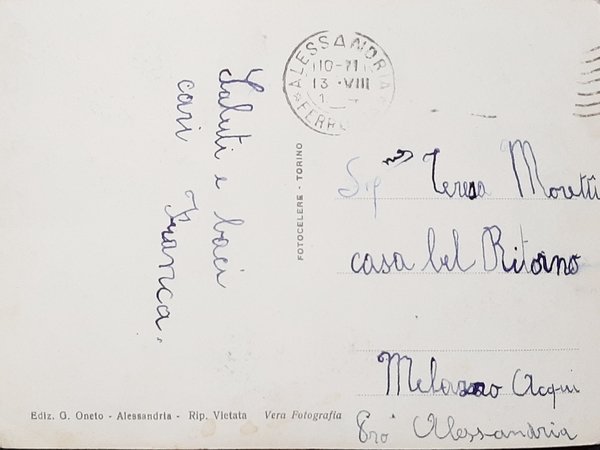 Saluti e baci
cari Franca.
ALESSANDRIA
10-11
13·VIII
FERR
FOTOCELERE - TORINO
Sigra Teresa Moretti
casa bel Ritorno
Melazzo Acqui
Pro Alessandria
Ediz. G. Oneto - Alessandria - Rip. Vietata Vera Fotografia